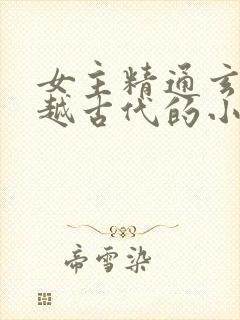 女主精通玄
越古代的小
帝雪染